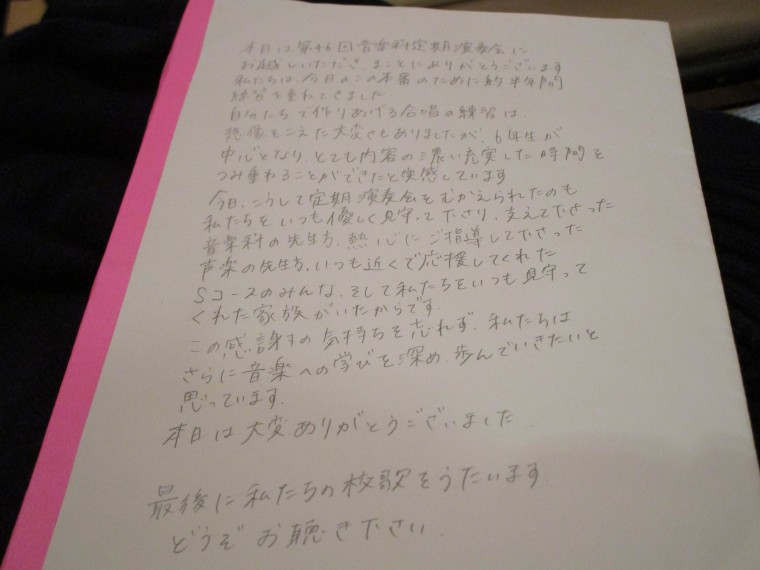 本日は第46回音楽科定期演奏会に
お越しいただき、まことにありがとうございます
私たちは、今日のこの本番のために約半年間
練習を重ねてきました。
自分たちで作りあげる合唱の練習は、
想像をこえた大変さもありましたが、6年生が
中心となり、とても内容の濃い充実した時間を
つみ重ねることができたと実感しています
今日、こうして定期演奏会をむかえられたのも
私たちをいつも優しく見守って下さり、支えて下さった
音楽科の先生方、熱心にご指導して下さった
声楽の先生方、いつも近くで応援してくれた
Sコースのみんな、そして私たちをいつも見守って
くれた家族がいたからです。
この感謝の気持ちを忘れず、私たちは
さらに音楽への学びを深め、歩んでいきたいと
思っています。
本日は大変ありがとうございました。
最後に私たちの校歌をうたいます
どうぞお聴き下さい。